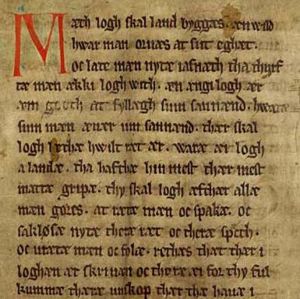 Mæth logh skal land byggæs. æn wild
hwar man oruæs at sit eghæt.
oc late mæn nytæ iafnæth tha thyrf
tæ mæn ækki logh with. æn ængi logh ær
æm goth at fyllægh sum sannænd. hwaræ
sum mæn æuær um sannænd. thær skal
logh letæ hwilt ræt ær. waræ æi logh
a landæ. tha hafthæ hin mest thær mest
mattæ gripæ. thy skal logh æfthær allæ
mæn gøræs. at rætæ mæn oc spakæ. oc
sakløsæ nytæ theræ ræt oc theræ spæth.
oc urætæ mæn oc folæ. rethæs thæt thær i
loghæn ær skriuæn oc thoræ æi for thy ful
kummæ theræ unskop thær the hauæ i